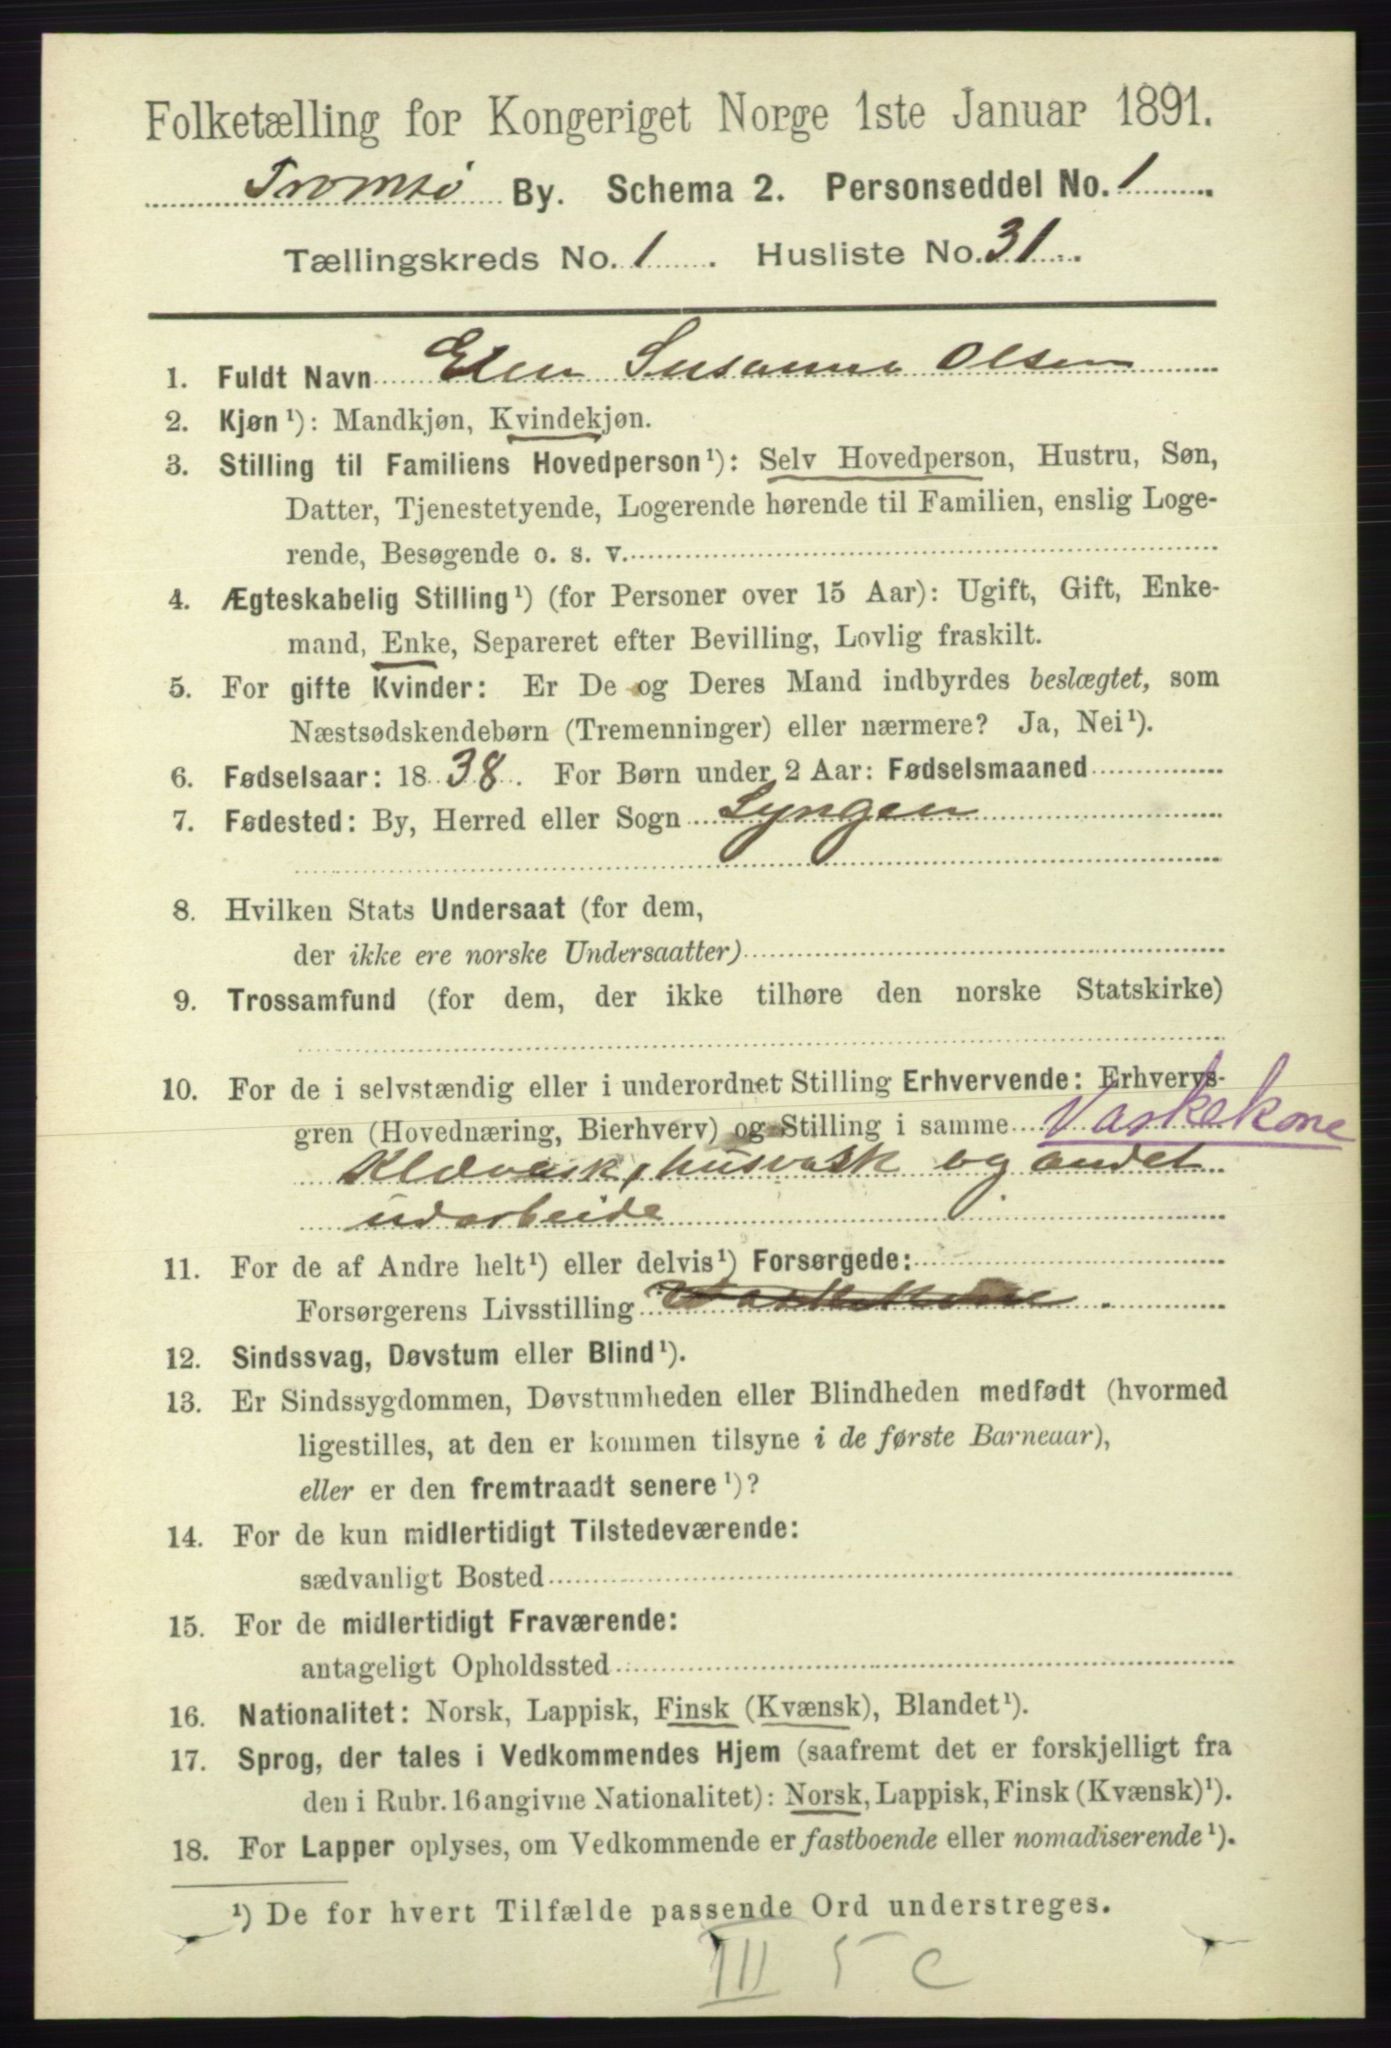 Folketælling for Kongeriget Norge 1ste Januar 1891.
Tromsø By. Schema 2. Personseddel No. 1
Tællingskreds No. 1. Husliste No. 31
1. Fuldt Navn Elen Susanna Olsen
2. Kjøn ¹): Mandkjøn, Kvindekjøn.
3. Stilling til Familiens Hovedperson¹): Selv Hovedperson, Hustru, Søn,
Datter, Tjenestetyende, Logerende hørende til Familien, enslig Loge-
rende, Besøgende o. s. v.
4. Ægteskabelig Stilling¹) (for Personer over 15 Aar): Ugift, Gift, Enke-
mand, Enke, Separeret efter Bevilling, Lovlig fraskilt.
5. For gifte Kvinder: Er De og Deres Mand indbyrdes beslægtet, som
Næstsødskendebørn (Tremenninger) eller nærmere? Ja, Nei¹).
6. Fødselsaar: 1838. For Børn under 2 Aar: Fødselsmaaned
7. Fødested: By, Herred eller Sogn Lyngen
8. Hvilken Stats Undersaat (for dem,
der ikke ere norske Undersaatter)
9. Trossamfund (for dem, der ikke tilhøre den norske Statskirke)
10. For de i selvstændig eller i underordnet Stilling Erhvervende: Erhvervs-
gren (Hovednæring, Bierhverv) og Stilling i samme Vaskekone
Klævask, husvask og andet
udarbeide
11. For de af Andre helt¹) eller delvis¹) Forsørgede:
Forsørgerens Livsstilling Vaskekone
12. Sindssvag, Døvstum eller Blind¹).
13. Er Sindssygdommen, Døvstumheden eller Blindheden medfødt (hvormed
ligestilles, at den er kommen tilsyne i de første Barneaar),
eller er den fremtraadt senere ¹)?
14. For de kun midlertidigt Tilstedeværende:
sædvanligt Bosted
15. For de midlertidigt Fraværende:
antageligt Opholdssted
16. Nationalitet: Norsk, Lappisk, Finsk (Kvænsk), Blandet¹).
17. Sprog, der tales i Vedkommendes Hjem (saafremt det er forskjelligt fra
den i Rubr. 16 angivne Nationalitet): Norsk, Lappisk, Finsk (Kvænsk)¹).
18. For Lapper oplyses, om Vedkommende er fastboende eller nomadiserende¹).
¹) De for hvert Tilfælde passende Ord understreges.
III 5 c